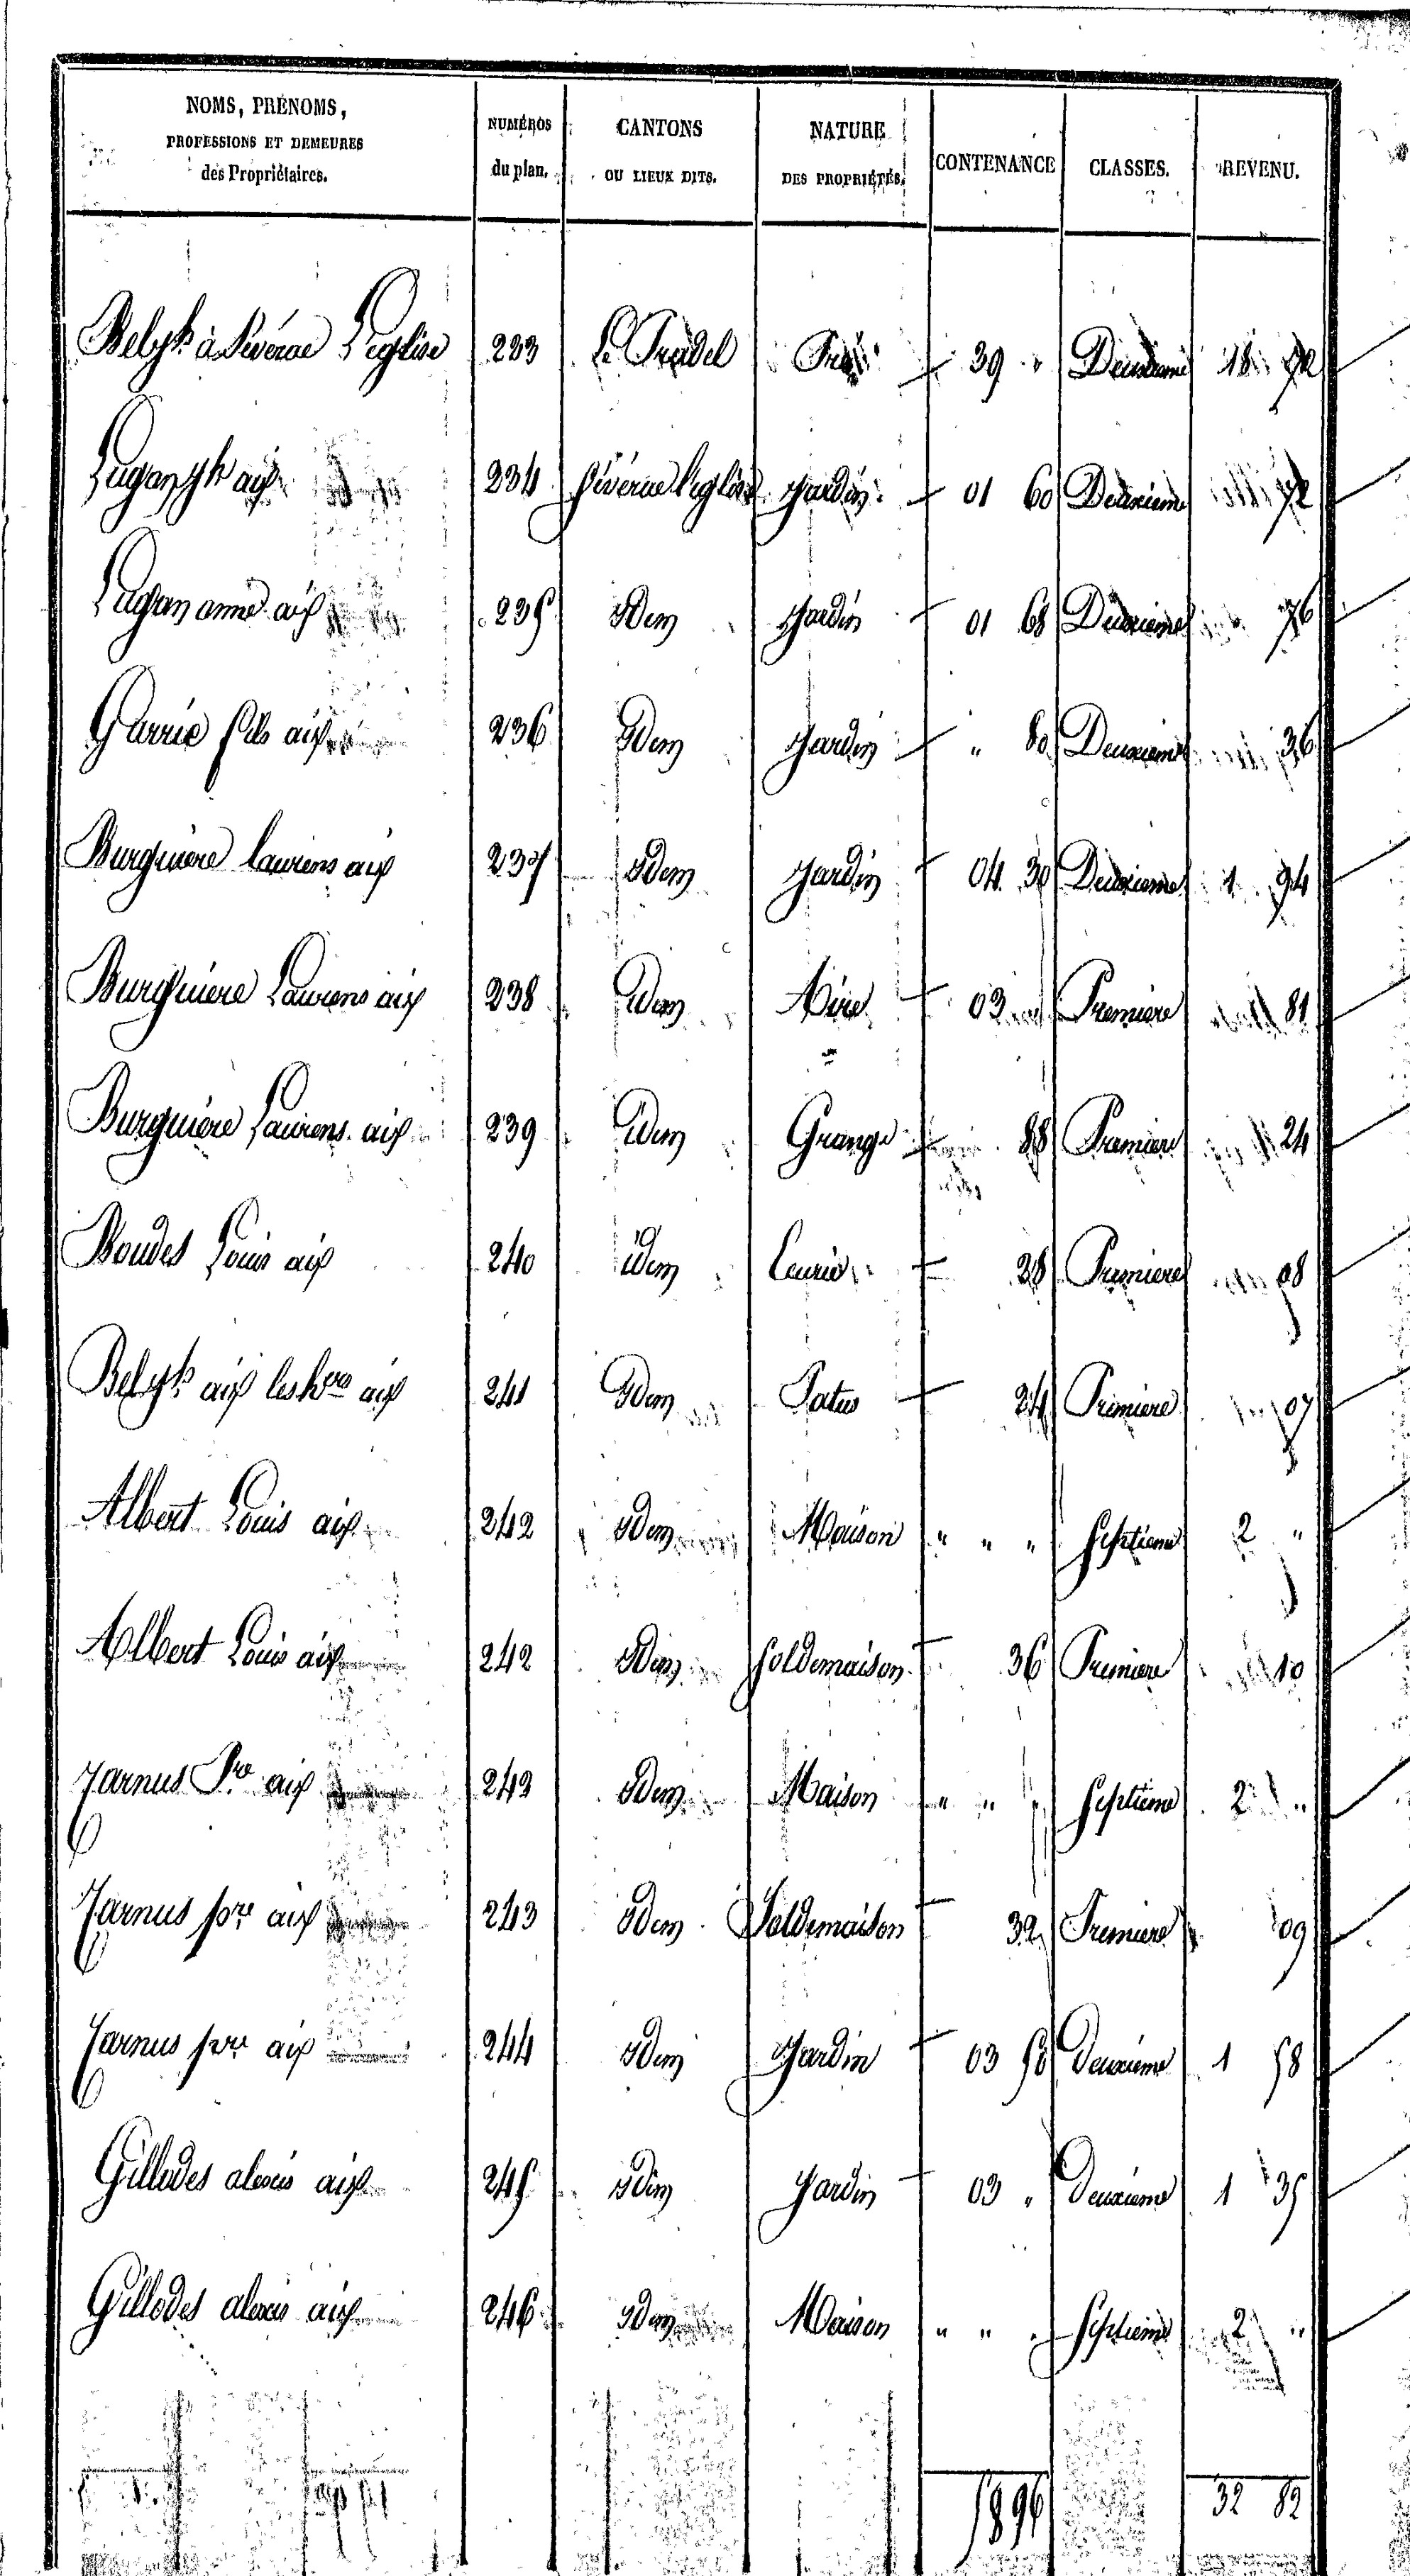 NOMS, PRÉNOMS, PROFESSIONS ET DEMEURES des Propriétaires. NUMÉROS du plan. CANTONS OU LIEUX DITS. NATURE DES PROPRIÉTÉS. CONTENANCE CLASSES. REVENU.
à Séverac L'eglise 233 Le Pradel Pré 39 " Deuxieme 18 72
234 Séverac l'eglise Jardin 01 60 Deuxieme 72
anne aix 235 Idem Jardin 01 68 Deuxieme 76
Garrie fils aix 236 Idem Jardin " 80 Deuxieme 36
Burguiere Laurens aix 237 Idem Jardin 04 30 Deuxieme 1 94
Burguiere Laurens aix 238 Idem Aire 03 Premiere 81
Burguiere Laurens aix 239 Idem Grange 88 Premiere 24
Boudes Louis aix 240 Idem Ecurie 28 Premiere 08
aix les hers aix 241 Idem Patus 24 Premiere 07
Albert Louis aix 242 Idem Maison " " " Septieme 2 "
Albert Louis aix 242 Idem Soldemaison 36 Premiere 10
Jarnus Pre aix 243 Idem Maison " " " Septieme 2 "
Jarnus pre aix 243 Idem Soldemaison 32 Premiere 09
Jarnus pre aix 244 Idem Jardin 03 50 deuxieme 1 58
Gillodes alexis aix 245 Idem Jardin 03 " deuxieme 1 35
Gillodes alexis aix 246 Idem Maison " " " Septieme 2 "
5896 32 82